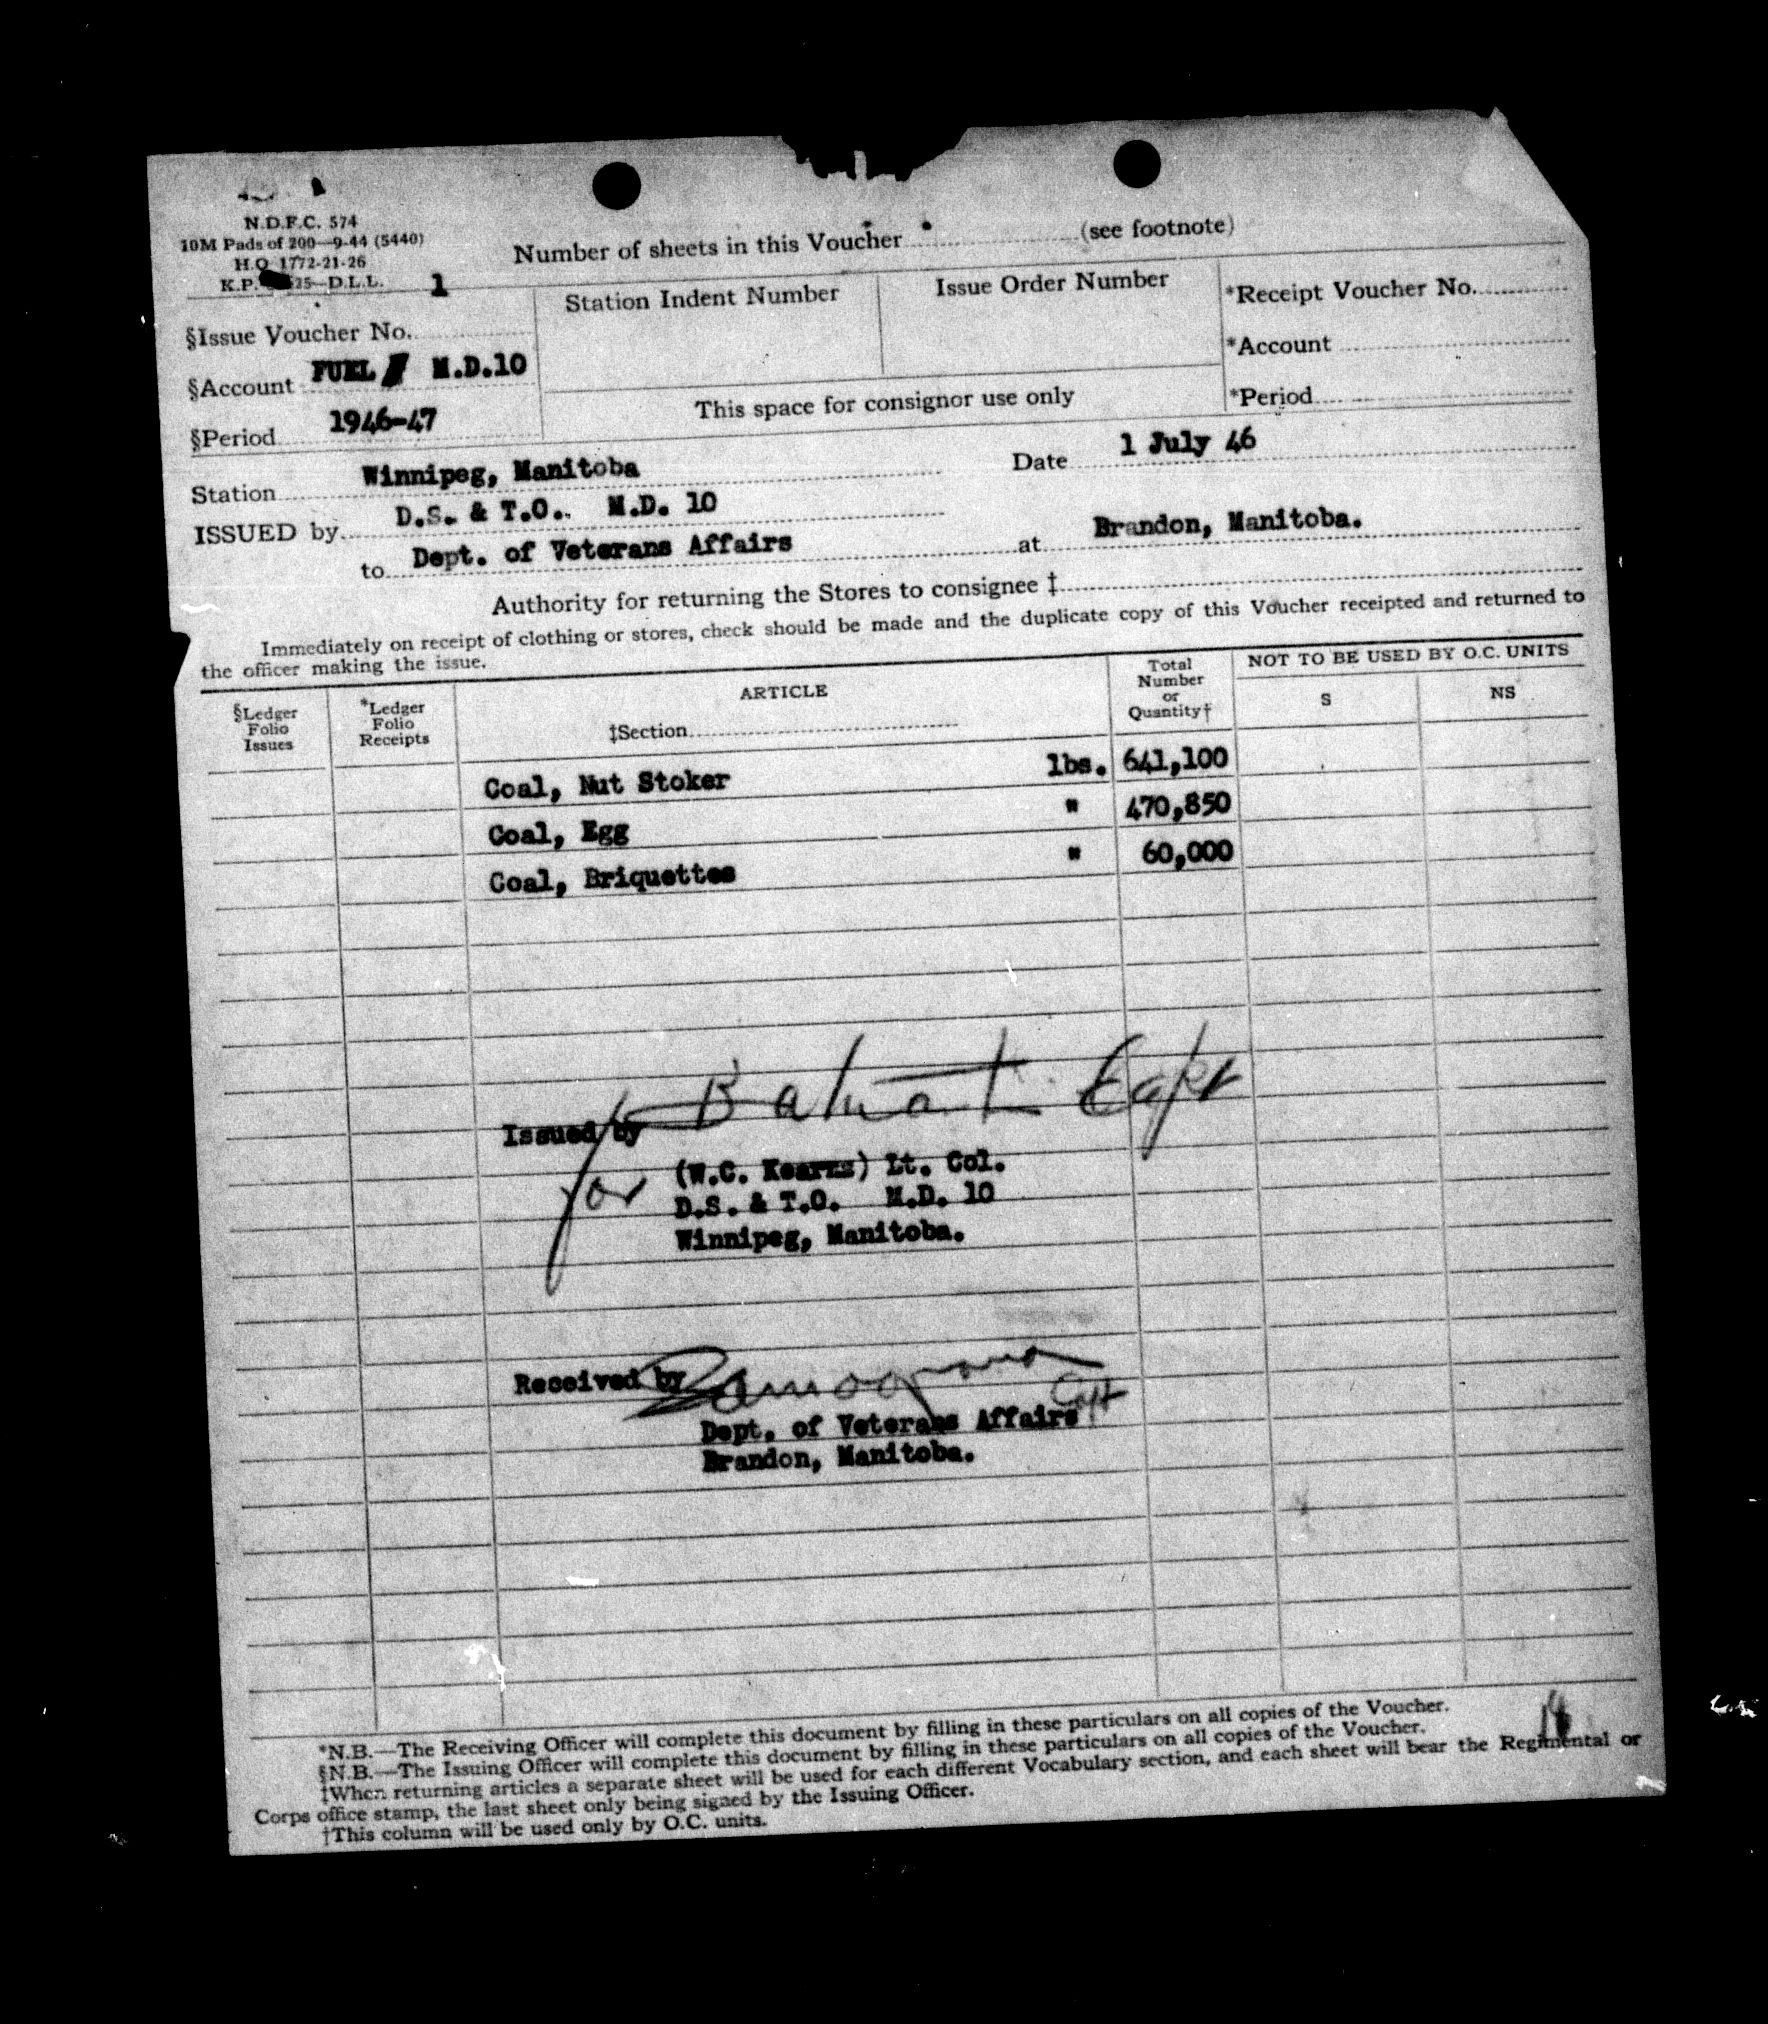 N.D.F.C. 574
10M Pads of 200—9-44 (5440)
H.Q. 1772-21-26
K.P. 25—D.L.L.
Number of sheets in this Voucher (see footnote)
§Issue Voucher No. 1
Station Indent Number
Issue Order Number
*Receipt Voucher No.
§Account FUEL M.D.10
*Account
§Period 1946-47
This space for consignor use only
*Period
Station Winnipeg, Manitoba
Date 1 July 46
ISSUED by D.S. & T.O. M.D. 10
to Dept. of Veterans Affairs at Brandon, Manitoba.
Authority for returning the Stores to consignee ‡
Immediately on receipt of clothing or stores, check should be made and the duplicate copy of this Voucher receipted and returned to
the officer making the issue.
§Ledger Folio Issues
*Ledger Folio Receipts
ARTICLE
‡Section
Total Number or Quantity†
NOT TO BE USED BY O.C. UNITS
S
NS
Coal, Nut Stoker lbs. 641,100
Coal, Egg " 470,850
Coal, Briquettes " 60,000
Issued by
for (W.C. Kearns) Lt. Col.
D.S. & T.O. M.D. 10
Winnipeg, Manitoba.
Received by
Capt
Dept. of Veterans Affairs
Brandon, Manitoba.
*N.B.—The Receiving Officer will complete this document by filling in these particulars on all copies of the Voucher.
§N.B.—The Issuing Officer will complete this document by filling in these particulars on all copies of the Voucher.
‡When returning articles a separate sheet will be used for each different Vocabulary section, and each sheet will bear the Regimental or
Corps office stamp, the last sheet only being signed by the Issuing Officer.
†This column will be used only by O.C. units.